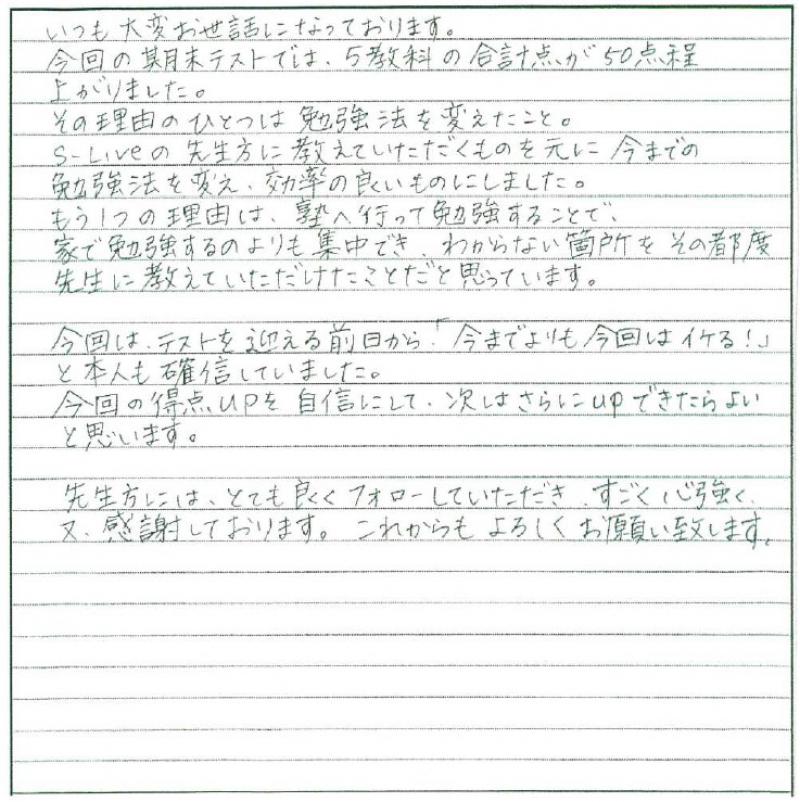 いつも大変お世話になっております。
今回の期末テストでは、5教科の合計点が50点程
上がりました。
その理由のひとつは勉強法を変えたこと。
S-Liveの先生方に教えていただくものを元に今までの
勉強法を変え、効率の良いものにしました。
もう1つの理由は、塾へ行って勉強することで、
家で勉強するのよりも集中でき、わからない箇所をその都度
先生に教えていただけたことだと思っています。
今回は、テストを迎える前日から「今までよりも今回はイケる!」
と本人も確信していました。
今回の得点UPを自信にして、次はさらにupできたらよい
と思います。
先生方には、とても良くフォローしていただき、すごく心強く、
又、感謝しております。これからもよろしくお願い致します。